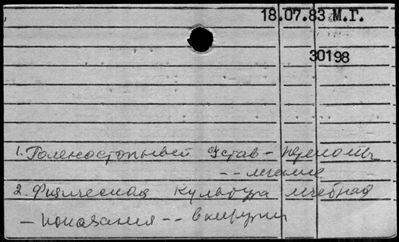 18.07.83 М.Г.
30198
1. Голеностопный устав - переломы
-- лечение
2. Физическая культура лечебная
- показания -- в хирургии